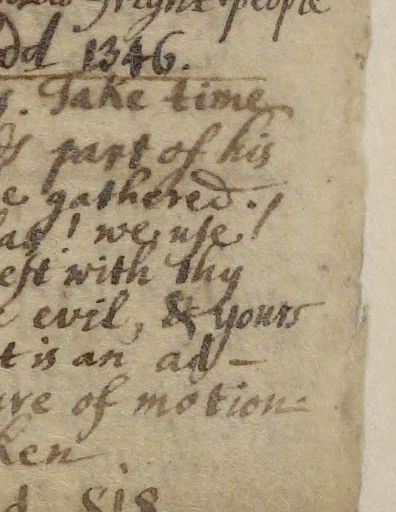 fright people
1346.
. Take time
part of his
e gathered.
! we use!
eft with thy
evil, & yours
t is an ad-
ure of motion
ken
d 818